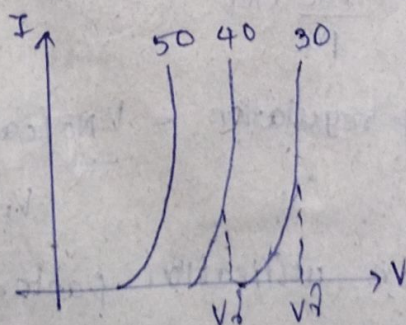 I
50 40 30
V
Vf Vf